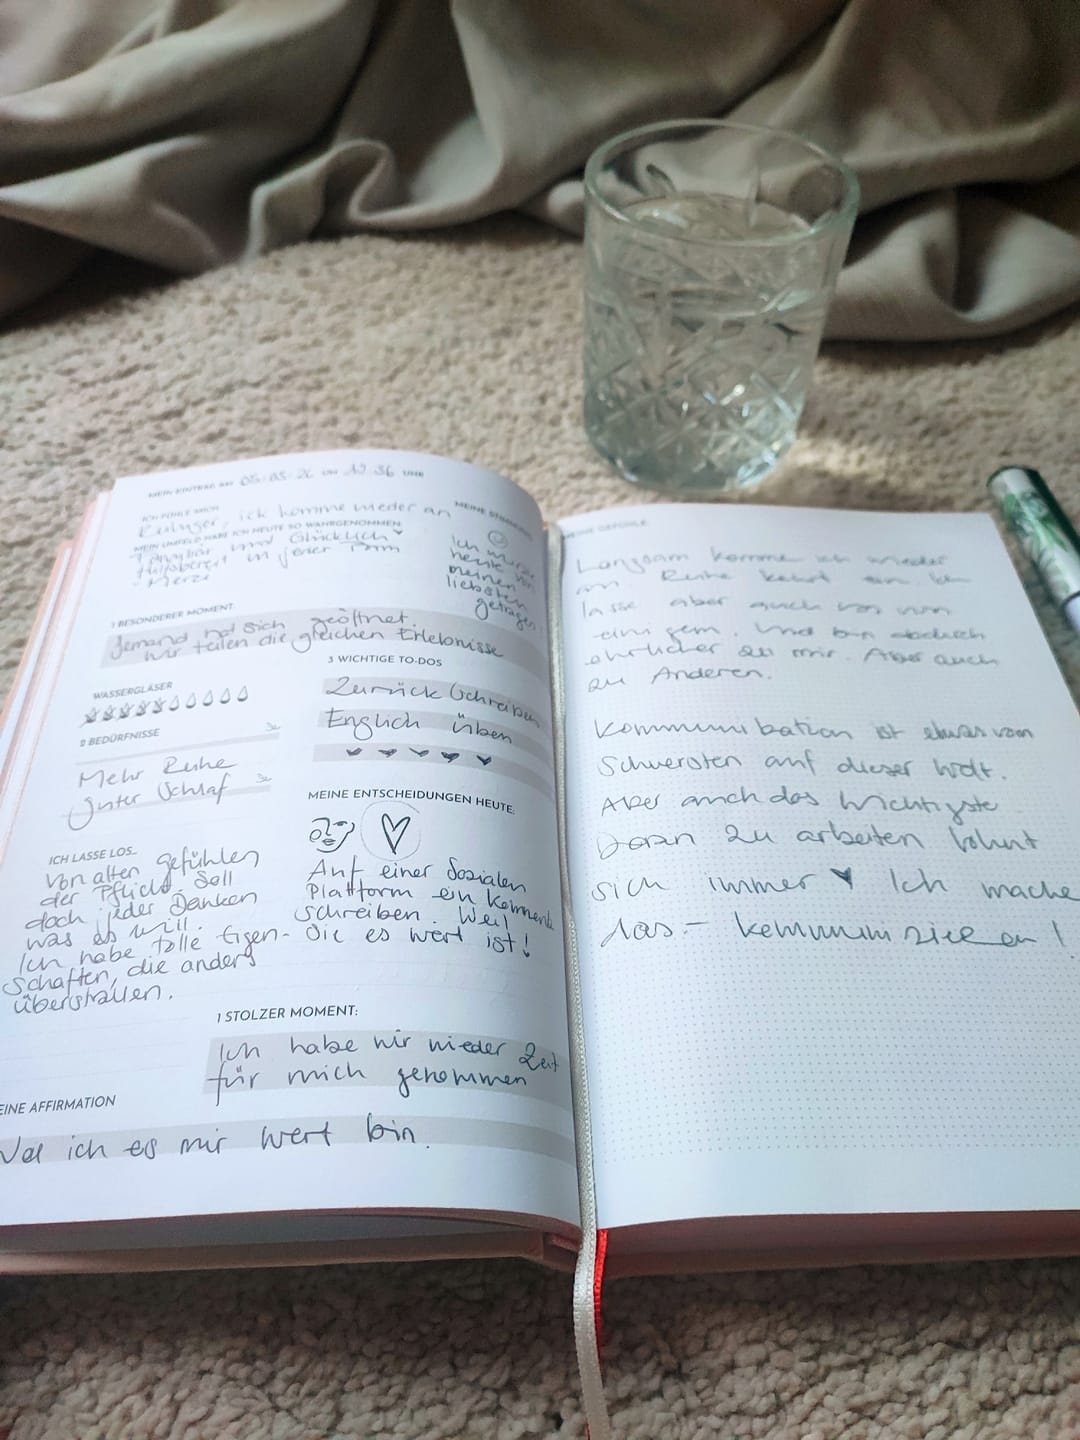 MEIN EINTRAG AM 05.03.26 UM 19:36 UHR
ICH FÜHLE MICH
Ruhiger, ich komme wieder an
MEIN UMFELD HABE ICH HEUTE SO WAHRGENOMMEN:
und Glücklich
Hilfsbereit in jener
Merci
MEINE STIMMUNG
Ich wurde
heute von
meinen
liebsten
getragen
1 BESONDERER MOMENT:
Jemand hat sich geöffnet.
Wir teilen die gleichen Erlebnisse
WASSERGLÄSER
2 BEDÜRFNISSE
Mehr Ruhe
Guter Schlaf
3 WICHTIGE TO-DOS
Zurück Schreiben
Englich üben
ICH LASSE LOS...
Von alten gefühlen
der Pflicht. Soll
doch jeder Denken
was es will.
Ich habe tolle Eigen-
schaften, die anders
überstrallen.
MEINE ENTSCHEIDUNGEN HEUTE:
Auf einer Sozialen
Plattform ein
schreiben. Weil
Sie es wert ist!
1 STOLZER MOMENT:
Ich habe mir wieder Zeit
für mich genommen
EINE AFFIRMATION
ich es mir wert bin.
MEINE GEFÜHLE
Langsam komme ich wieder
an Ruhe kehrt ein. Ich
lasse aber auch los von
einigem. Und bin dadurch
ehrlicher zu mir. Aber auch
zu Anderen.
Kommunikation ist etwas vom
Schwersten auf dieser Welt.
Aber auch das Wichtigste
Daran zu arbeiten lohnt
sich immer ♥ Ich mache
das - kommunizieren!